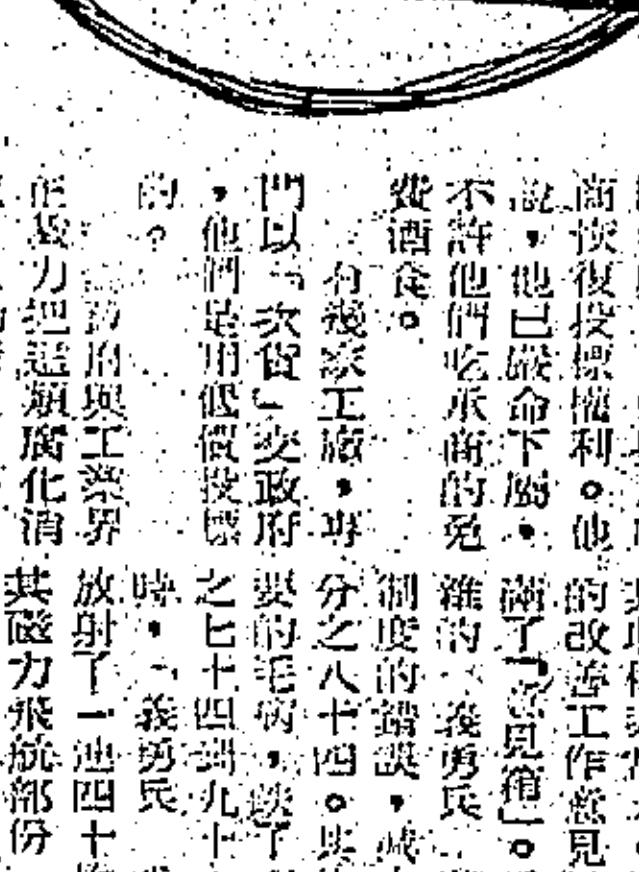 商恢復投標權利。他
說，他已嚴命下屬，
不許他們吃承商的免
費酒食。
有幾家工廠，專
門以「次貨」交政府
，他們是用低價投標
的？
政府與工業界
正致力把這類腐化消
的改善工作意見
滿了「意見箱」。
雜的「義勇兵
制度的錯誤，減
分之八十四。
要的毛病，跌了
之七十四到九十
時，「義勇兵
放射了一連四十
其磁力飛航部份